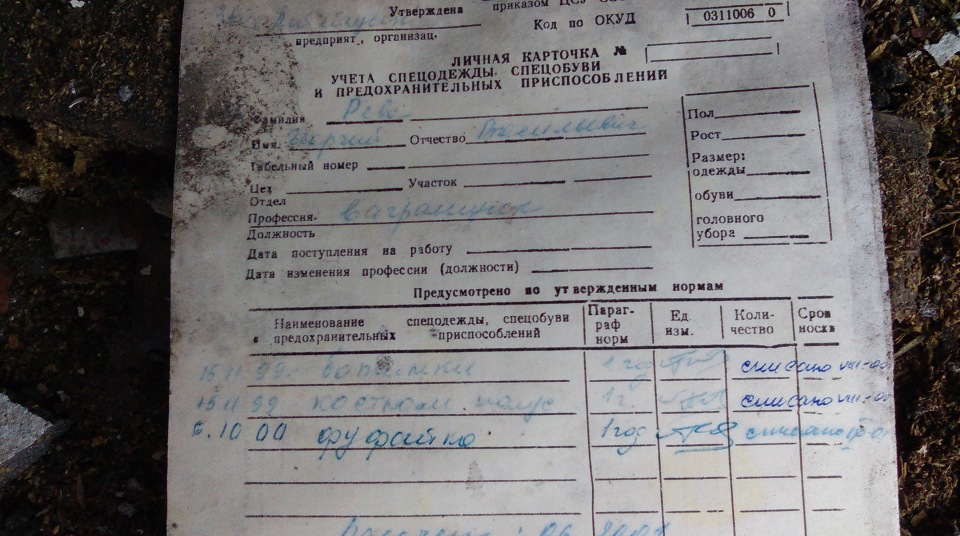 Утверждена приказом ЦСУ
Код по ОКУД 0311006 0
предприят, организац.
ЛИЧНАЯ КАРТОЧКА №
УЧЕТА СПЕЦОДЕЖДЫ, СПЕЦОБУВИ
И ПРЕДОХРАНИТЕЛЬНЫХ ПРИСПОСОБЛЕНИЙ
Фамилия Рева
Имя Георгий Отчество Васильевич
Табельный номер
Цех Участок
Отдел
Профессия. вагранщик
Должность
Дата поступления на работу
Дата изменения профессии (должности)
Пол
Рост
Размер:
одежды
обуви
головного
убора
Предусмотрено по утвержденным нормам
Наименование спецодежды, спецобуви
предохранительных приспособлений
Параг-
раф
норм
Ед.
изм.
Коли-
чество
Срок
носки
15 11 99 ботинки 1 год списано
15 11 99 костюм 1г. списано
6.10 00 фуфайка 1 год списано